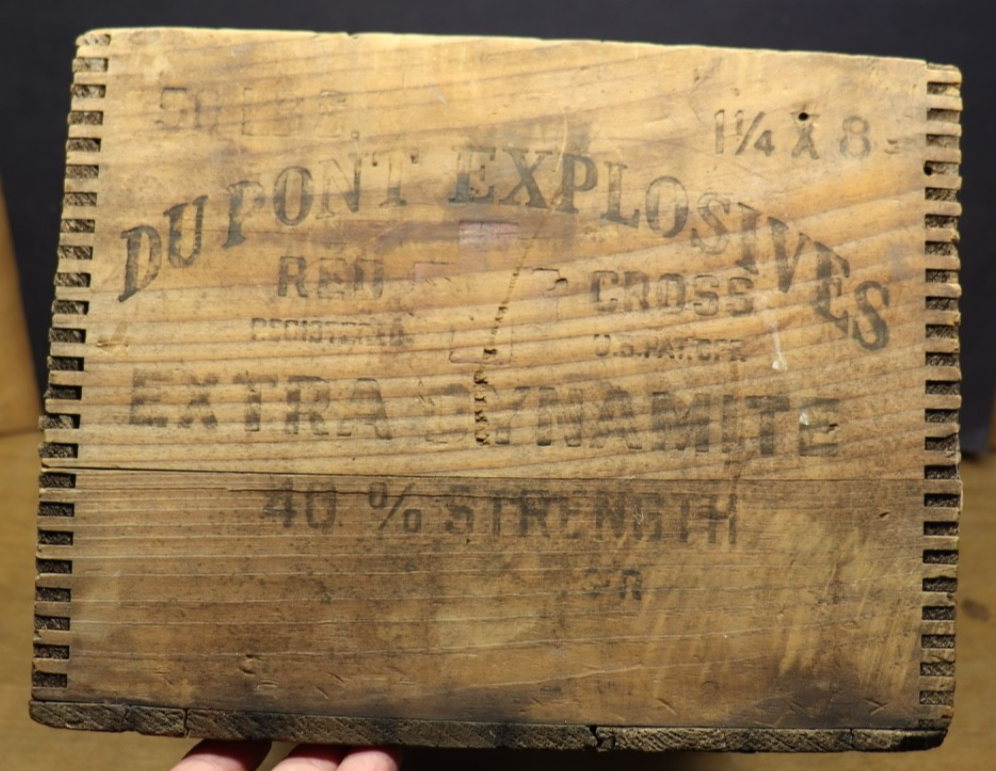 50 LBS. 1¼ X 8
DU PONT EXPLOSIVES
RED CROSS
REGISTERED. U.S. PAT. OFF.
EXTRA DYNAMITE
40 % STRENGTH